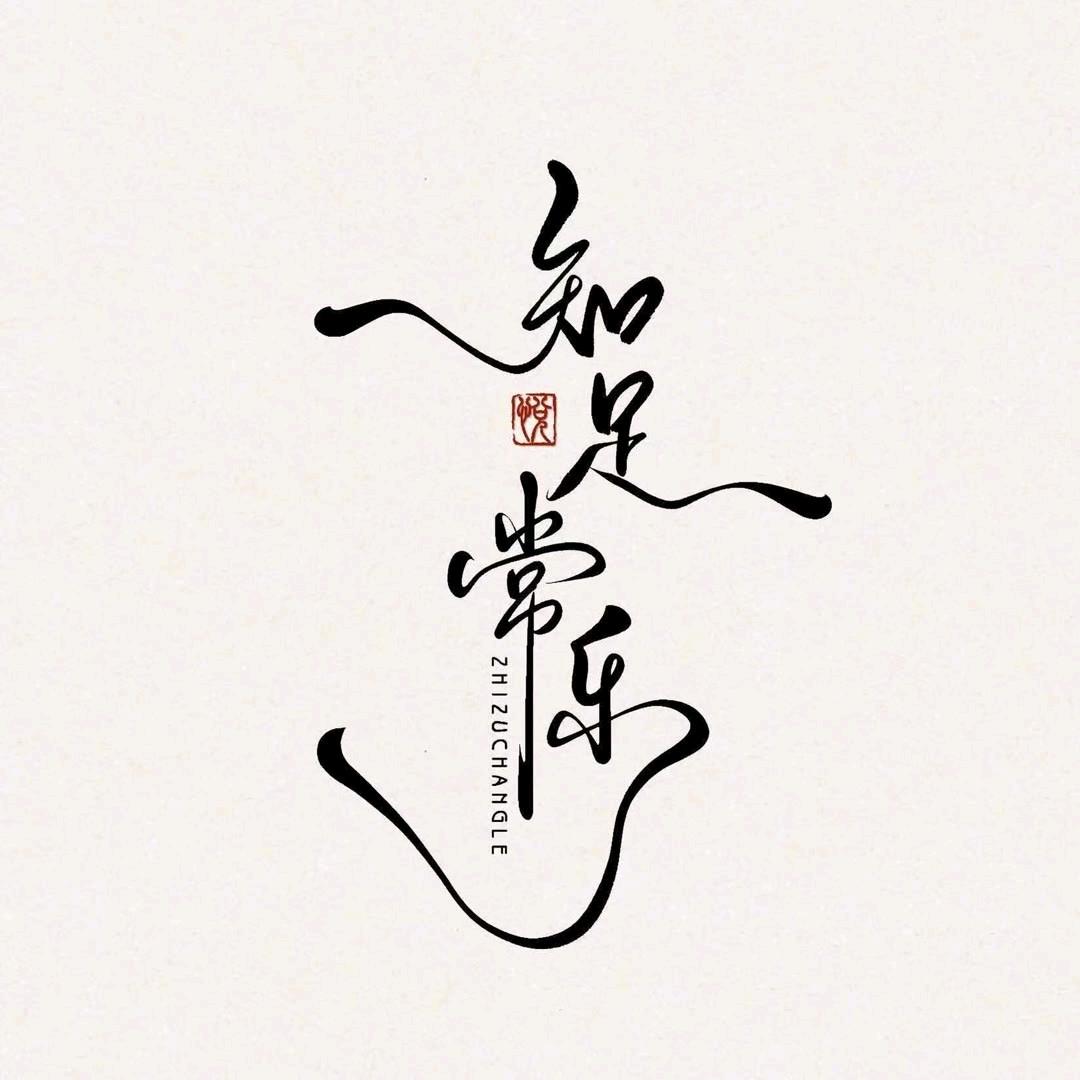 知足
常乐
悦
ZHIZUCHANGLE